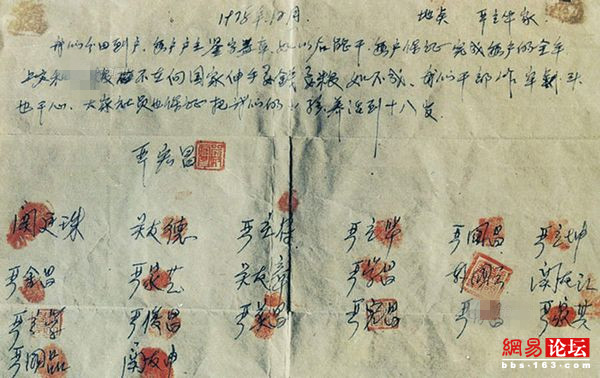 1978年12月. 地点 严立华家
我们分田到户.每户户主签字盖章.如以后能干.每户保证完成每户的全年
上交和 粮 不在向国家伸手要钱要粮.如不成.我们干部作牢 头
也干心.大家社员也保证把我们的小孩养活到十八岁.
严宏昌
关廷珠 关友德 严立付 严立华 严国昌 严立坤
严金昌 严家芝 关友章 严学昌 韩国云 关友江
严立学 严俊昌 严美昌 严宏昌 严 昌 严家其
严国品 关友申
网易 论坛
bbs.163.com